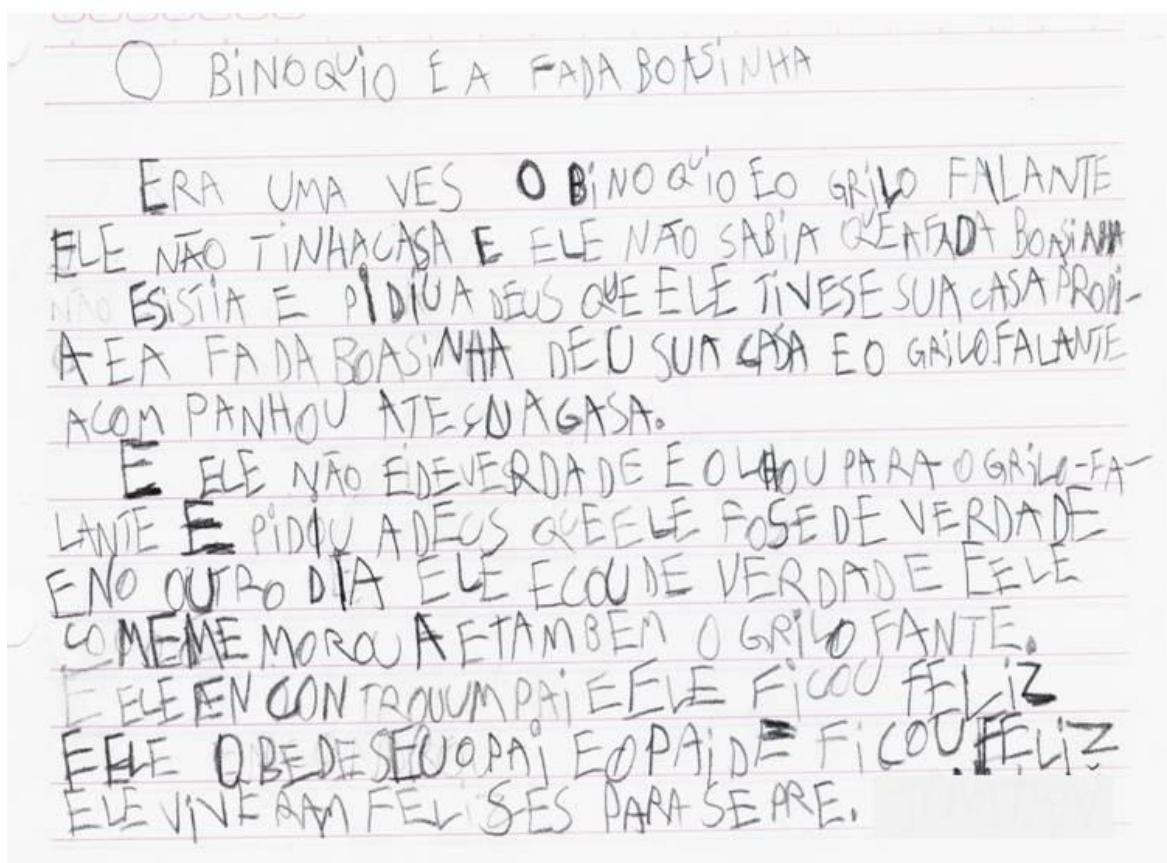 O BINOQUIO E A FADA BOASINHA
ERA UMA VES O BINOQUIO E O GRILO FALANTE
ELE NÃO TINHA CASA E ELE NÃO SABIA QUE A FADA BOASINHA
NÃO ESISTIA E PIDIU A DEUS QUE ELE TIVESE SUA CASA PROPI-
A E A FADA BOASINHA DEU SUA CASA E O GRILO FALANTE
ACOMPANHOU ATE SUA GASA.
E ELE NÃO E DE VERDADE E OLHOU PARA O GRILO-FA-
LANTE E PIDIU A DEUS QUE ELE FOSE DE VERDADE
E NO OUTRO DIA ELE ECOU DE VERDADE E ELE
COMEMEMOROU A E TAMBEM O GRILO FANTE.
E ELE ENCONTROU UM PAI E ELE FICOU FELIZ
E ELE OBEDESEU O PAI E O PAI DE FICOU FELIZ
ELE VIVERAM FELISES PARA SEPRE.